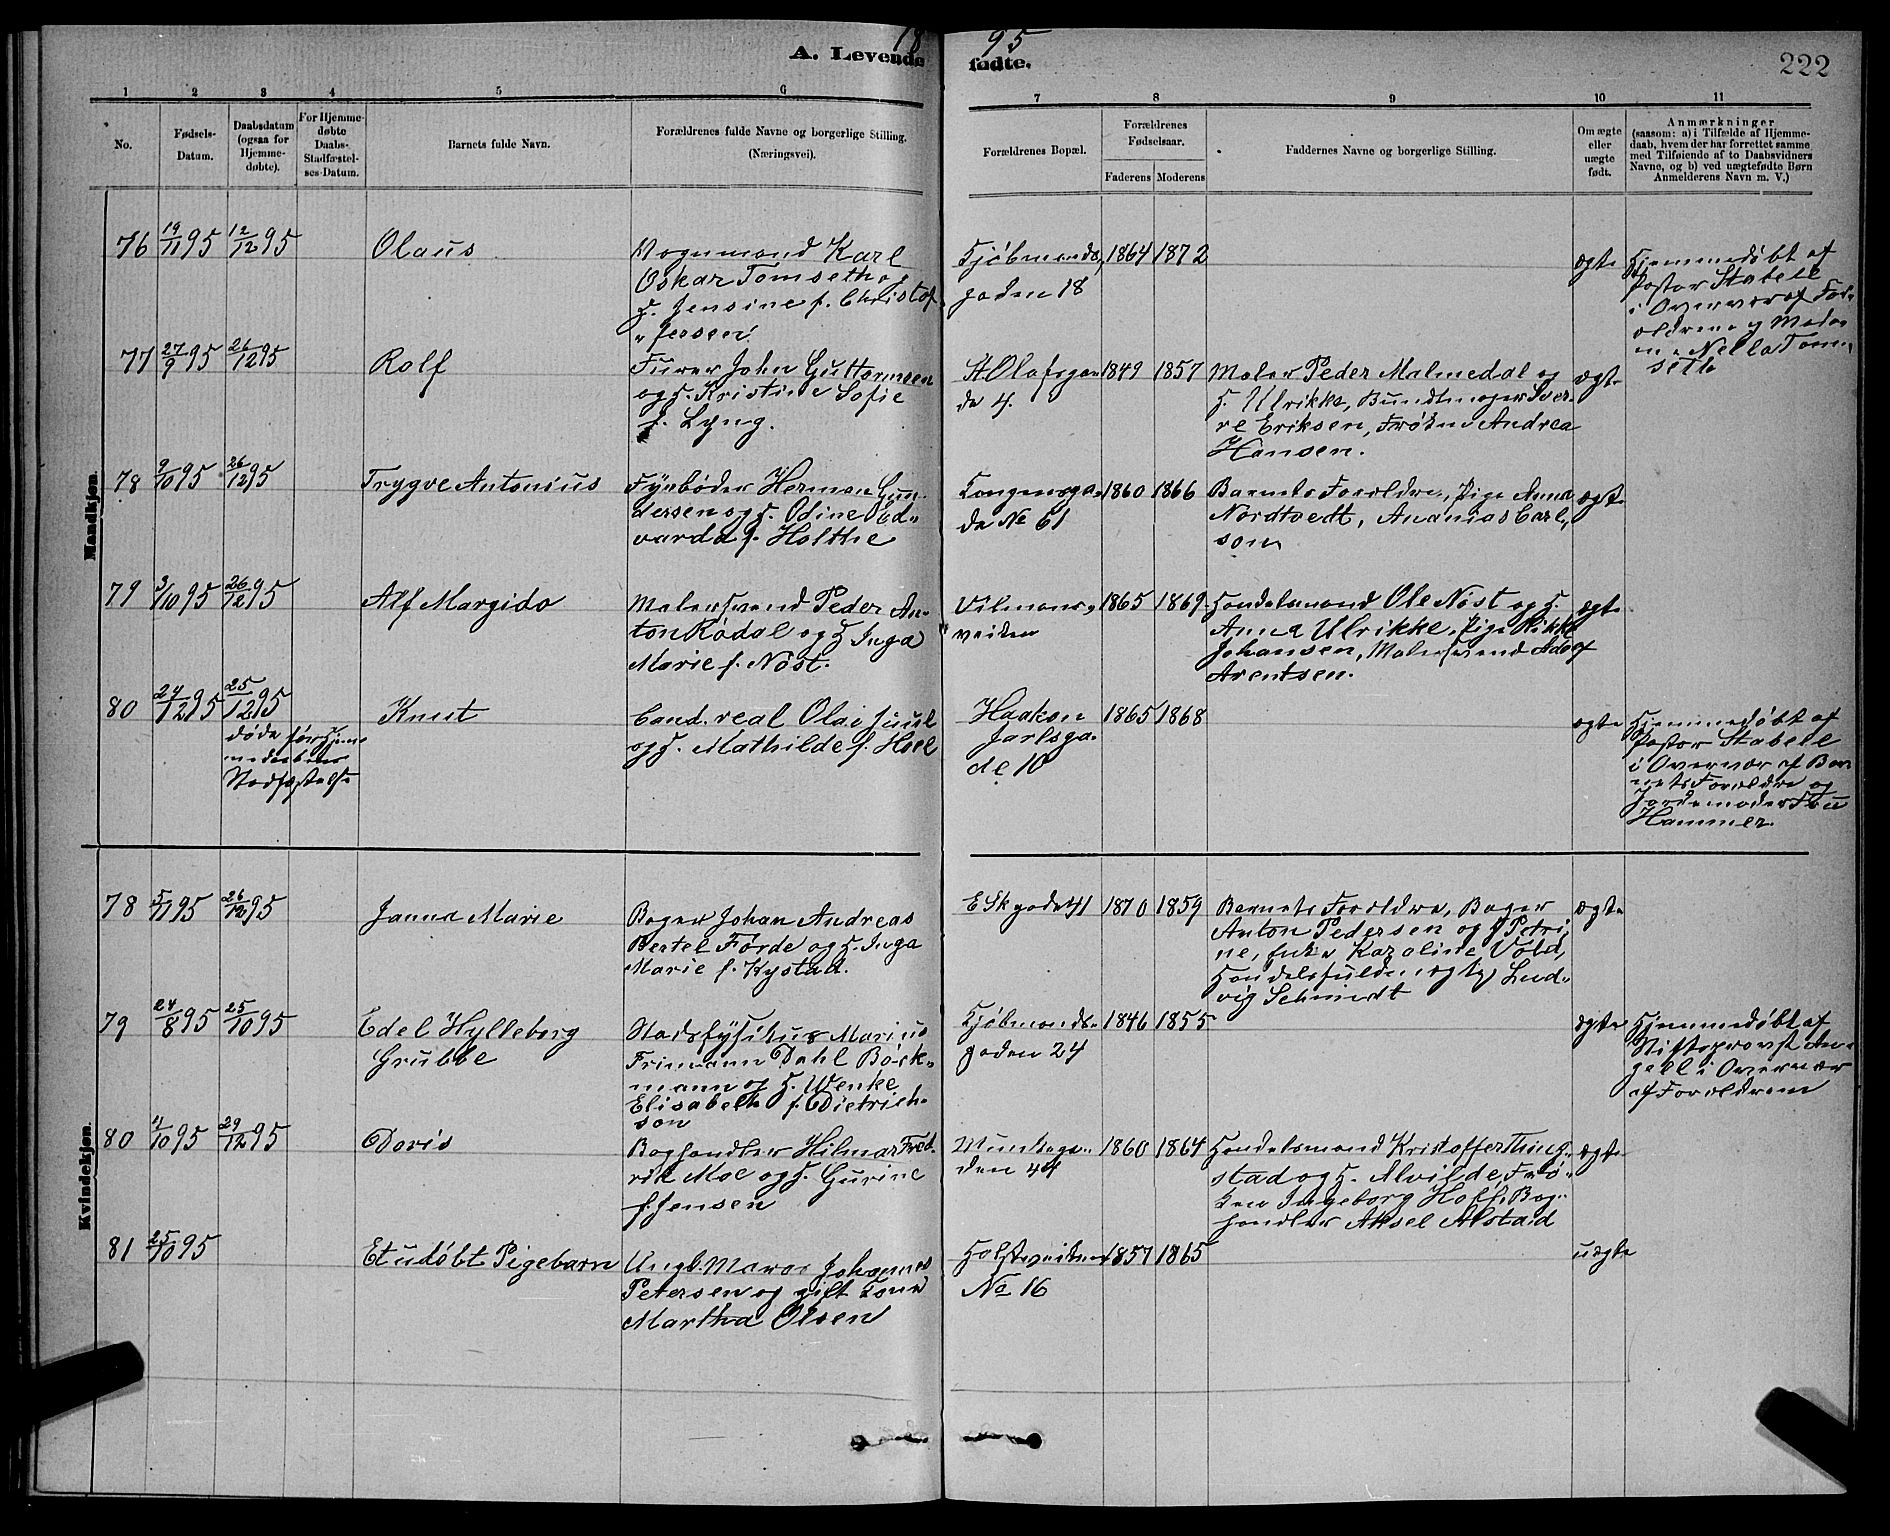 1895
A. Levende fødte.
222
1 2 3 4 5 6 7 8 9 10 11
No.
Fødsels-
Datum.
Daabsdatum
(ogsaa for
Hjemme-
døbte).
For Hjemme-
døbte
Daabs-
Stadfæstel-
ses-Datum.
Barnets fulde Navn.
Forældrenes fulde Navne og borgerlige Stilling.
(Næringsvei).
Forældrenes Bopæl.
Forældrenes
Fødselsaar.
Faderens Moderens
Faddernes Navne og borgerlige Stilling.
Om ægte
eller
uægte
født.
Anmærkninger
(saasom: a) i Tilfælde af Hjemme-
daab, hvem der har forrettet samme
med Tilføiende af to Daabsvidners
Navne, og b) ved uægtefødte Børn
Anmelderens Navn m. V.)
Mandkjøn.
76 19/11 95 12/12 95
Olaus
Vognmand Karl
Oskar Tomseth og
H. Jensine f. Christof
"fersen
Kjøbmands,
gaden 18
1864 1872
ægte
Hjemmedøbt af
Pastor Stabell
i Overvær af For-
ældrene og
Nella Tom-
seth
77 27/9 95 26/12 95
Rolf
Furer John Guttormsen
og H. Kristine Sofie
f. Lyng.
St Olafsga-
de 4.
1849 1857
Maler Peder Malmedal og
H. Ulrikke, Bundtmager Sver-
re Eriksen, Frøken Andrea
Hansen.
ægte
78 9/10 95 26/12 95
Trygve Antonius
Fyrbøder Herman Gun-
dersen og H. Odine Ed-
varda f. Holthe
Kongensga-
de No 61
1860 1866
Barnets Forældre, Pige Anna
Nordtvedt, Ananias Carl,
son
ægte
79 3/10 95 26/12 95
Alf Margido
Malersvend Peder An-
ton Rødal og H Inga
Marie f. Nøst.
Vilmans-
veiten
1865 1869
Handelsmand Ole Nøst og H.
Anna Ulrikke, Pige Rikke
Johansen, Malersvend Adolf
Arentsen.
ægte
80 24/12 95 25/12 95
døde før Hjem-
medaabens
Stadfæstelse
Knut
Cand. real Olai Juul
og H. Mathilde f. Hoel
Haakon
Jarlsga-
de 10
1865 1868
ægte
Hjemmedøbt af
Pastor Stabell
i Overvær af Bar-
nets Forældre og
Jordemoder Fru
Hammer.
Kvindekjøn.
78 5/11 95 26/12 95
Janna Marie
Bager Johan Andreas
Bertel Førde og H. Inga
Marie f. Kystad.
1870 1859
Barnets Forældre, Bager
Anton Pedersen og H Petri,
ne, Enke Karoline Vold,
Handelsfuldmægtig Lud-
vig Schmidt
ægte
79 24/8 95 25/10 95
Edel Hylleborg
Grubbe
Stadsfysikus Marius
Frimann Dahl Böck-
mann og H. Wenke
Elisabeth f. Dietrich-
son
Kjøbmands-
gaden 24
1846 1855
ægte
Hjemmedøbt af
Stiftsprovst An-
gell i Overvær
af Forældrene
80 4/10 95 29/12 95
Doris
Boghandler Hilmar Fred-
rik Moe og H. Gurine
f. Jensen
Munkega-
den 44
1860 1864
Handelsmand Kristoffer Thing-
stad og H. Alvilde, Frø-
ken Ingeborg Hoff, Bog-
handler Aksel Alstad
ægte
81 25/10 95
Et udøbt Pigebarn
Ungk. Johannes
Petersen og gift Kone
Martha Olsen
Holstveiten
No 16
1857 1865
uægte